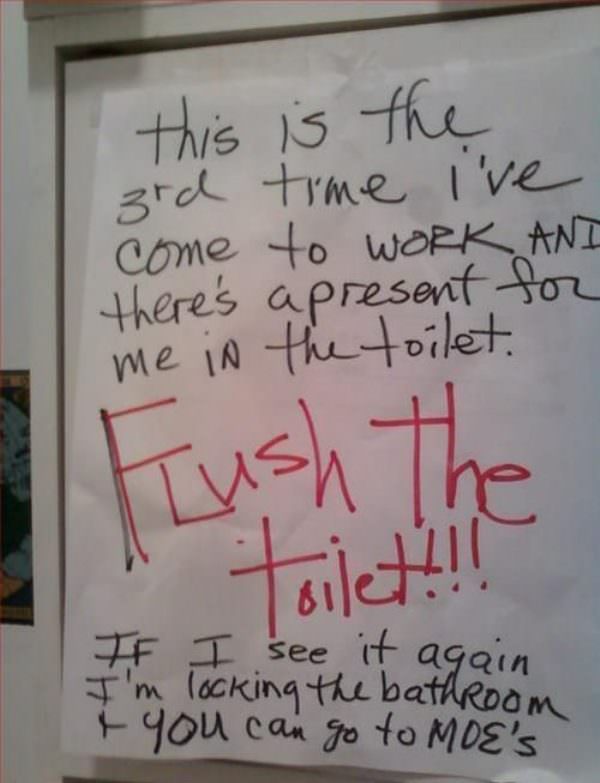 this is the
3rd time i've
come to WORK AND
there's a present for
me iN the toilet.
Flush the
toilet!!!
IF I see it again
I'm locking the bathRoom
+ YOU can go to MOE's